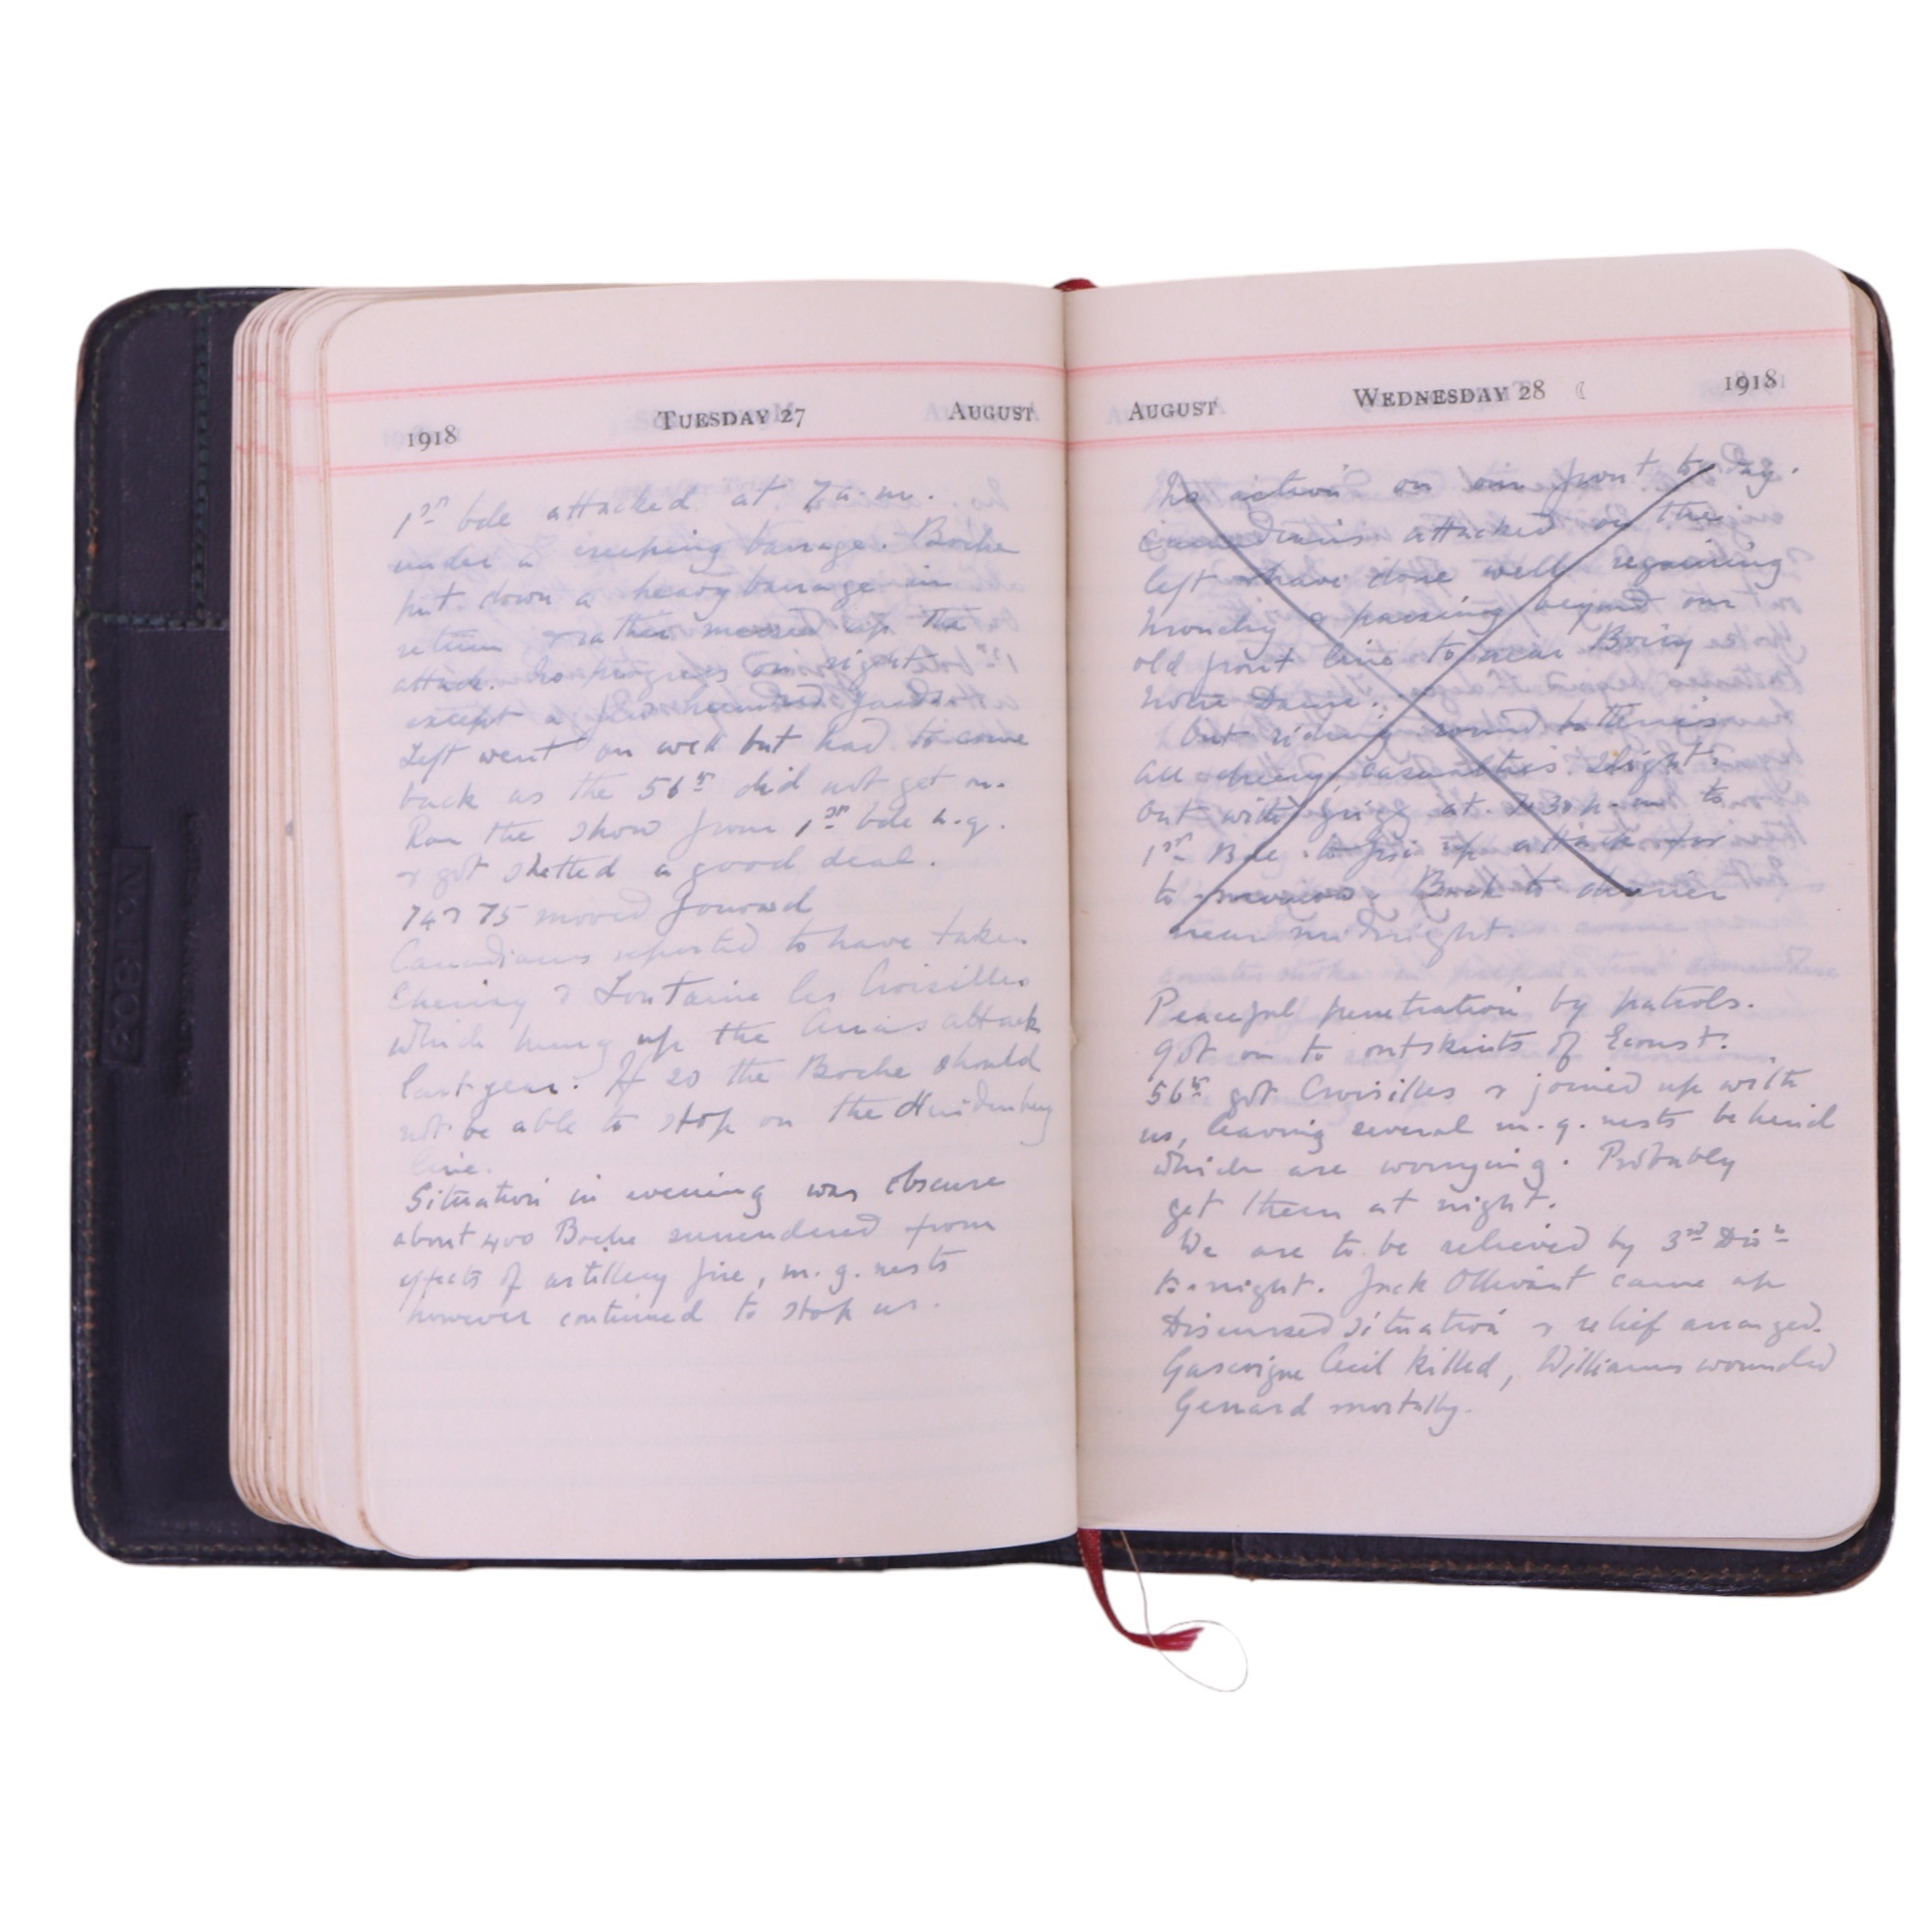 1918 TUESDAY 27 AUGUST
1st bde attacked at 7 a.m.
under a creeping barrage. Boche
put down a heavy barrage in
return & rather messed up the
attack. No progress on right
except a few hundred yards.
Left went on well but had to come
back as the 56th did not get on.
Ran the show from 1st bde h.q.
& got shelled a good deal.
74 & 75 moved forward
Canadians reported to have taken
Cherisy & Fontaine les Croisilles
which hung up the Arras attack
last year. If so the Boche should
not be able to stop on the Hindenburg
line.
Situation in evening was obscure
about 400 Boche surrendered from
effects of artillery fire, m.g. nests
however continued to stop us.
AUGUST WEDNESDAY 28 ☾ 1918
No action on our front to-day.
Canadians attacked on the
left & have done well regaining
Monchy & passing beyond our
old front line to near Boiry
Notre Dame.
Out riding round batteries
all cheery, casualties slight.
Out with at 7.30 p.m. to
1st Bde. to fix up attack for
to-morrow. Back to dinner
near midnight.
Peaceful penetration by patrols.
Got on to outskirts of Ecoust.
56th got Croisilles & joined up with
us, leaving several m.g. nests behind
which are worrying. Probably
get them at night.
We are to be relieved by 3rd Divn
to-night. Jack Ollivant came up
Discussed situation & relief arranged.
Gascoigne Cecil killed, Williams wounded
Gerrard mortally.